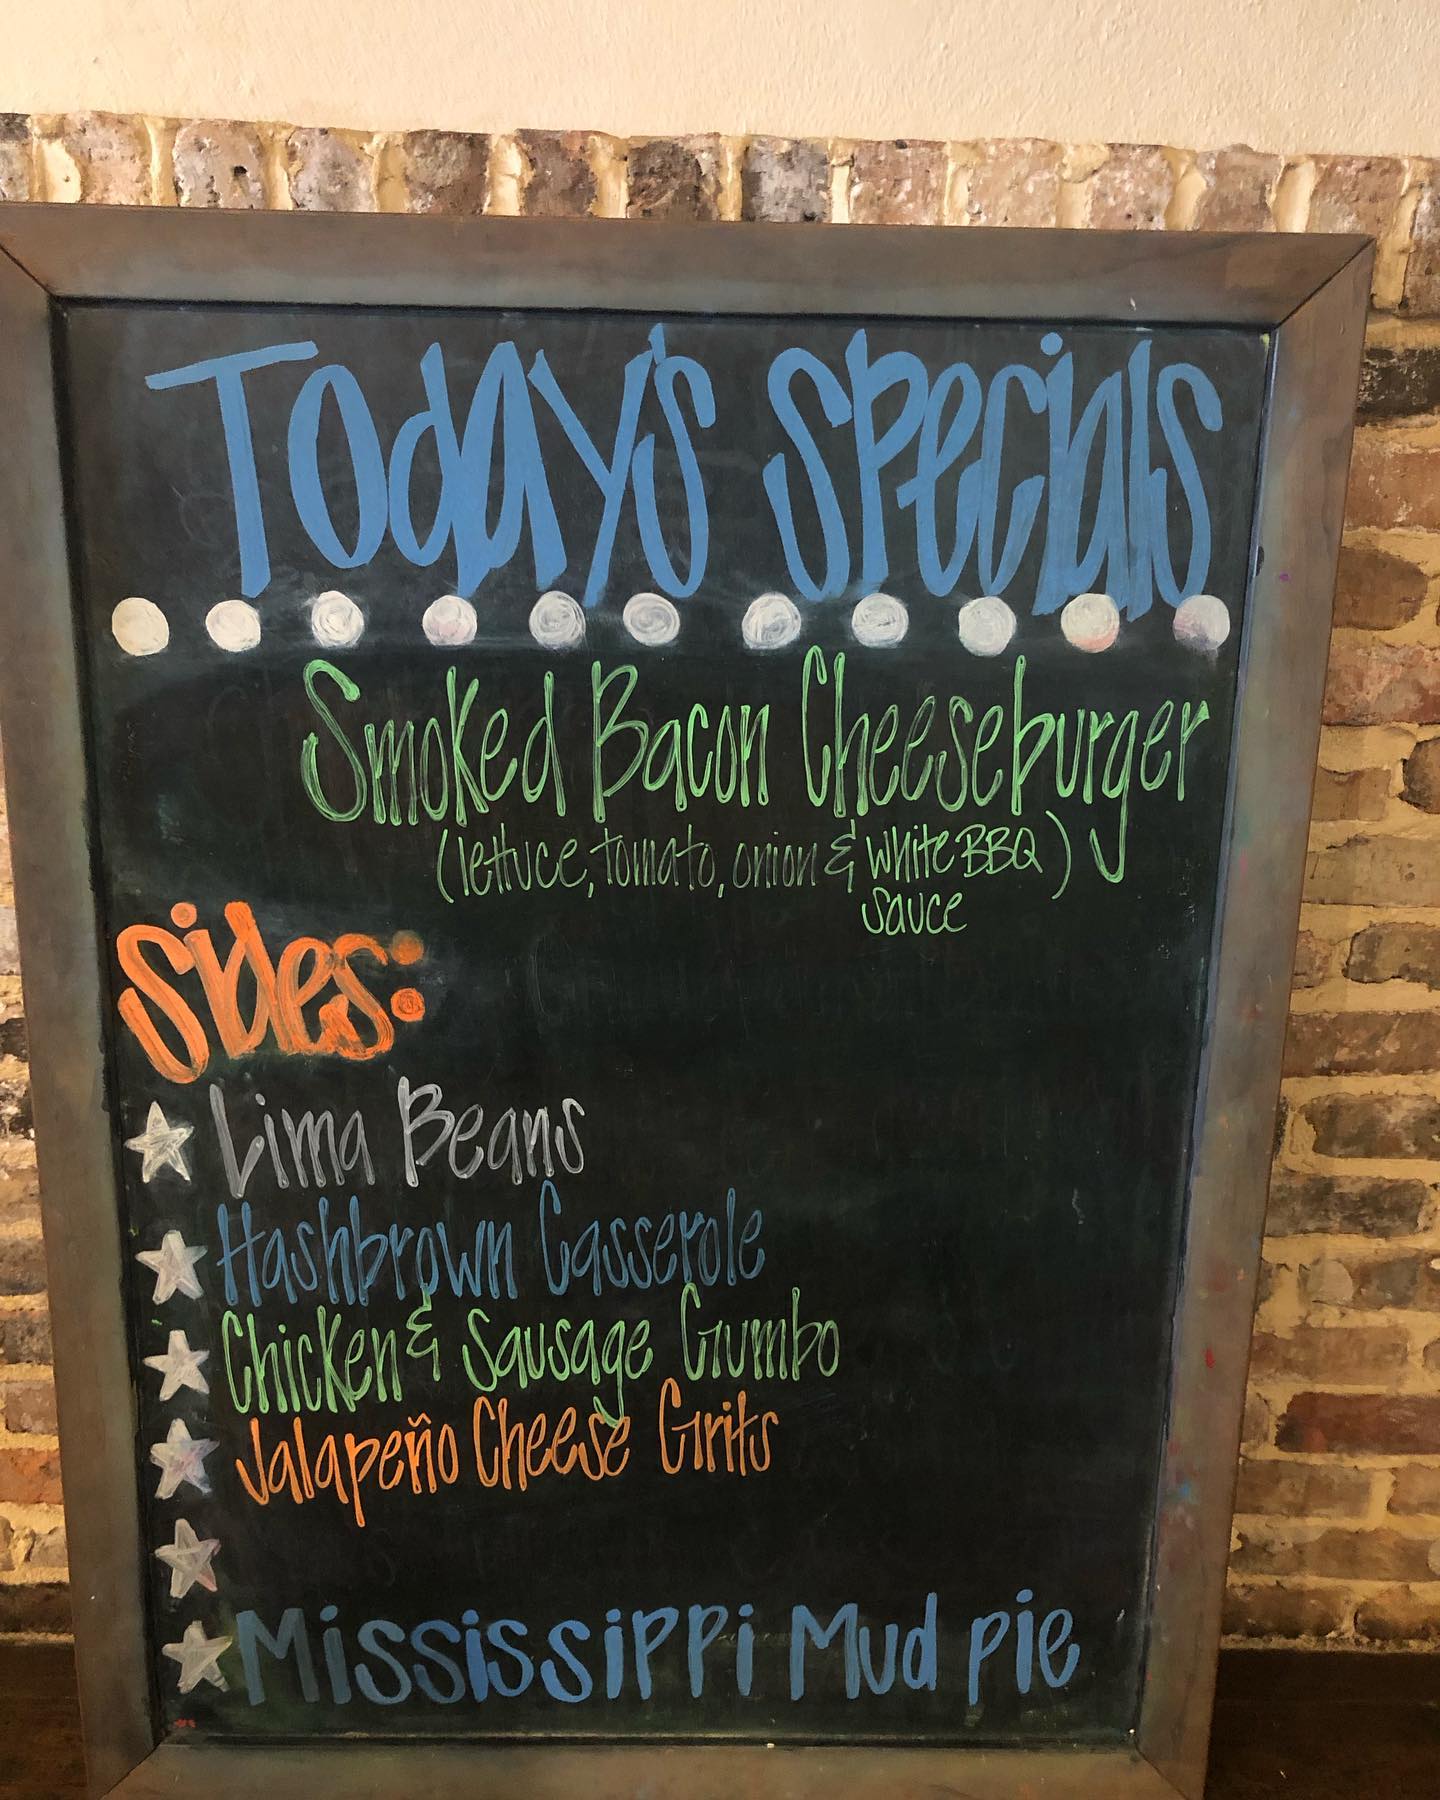 Today's Specials
Smoked Bacon Cheeseburger
(lettuce, tomato, onion & white BBQ)
sauce
Sides:
Lima Beans
Hashbrown Casserole
Chicken & Sausage Gumbo
Jalapeño Cheese Grits
Mississippi Mud pie